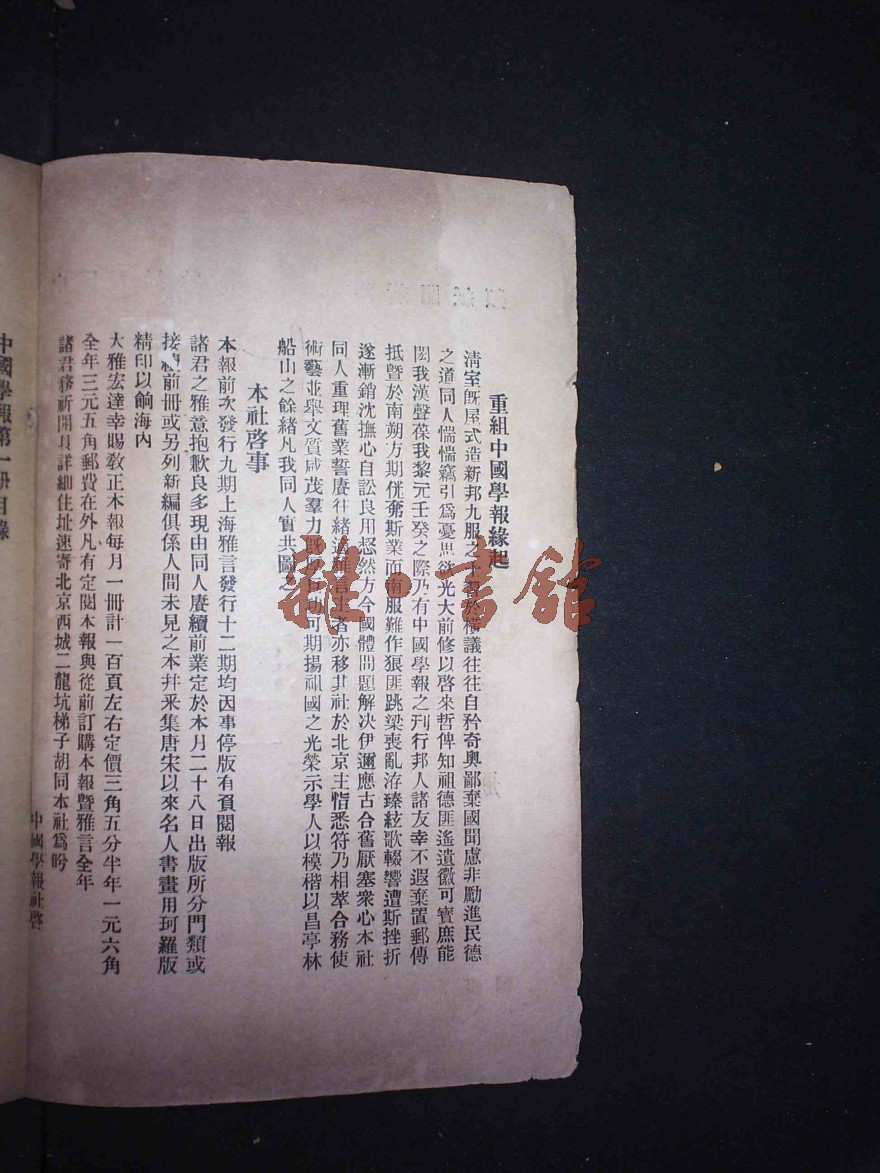 重組中國學報緣起
清室旣屋式造新邦九服之下習於橫議往往自矜奇奧鄙棄國聞慮非勵進民德
之道同人惴惴竊引爲憂思欲光大前修以啓來哲俾知祖德匪遙遺徽可寶庶能
閎我漢聲葆我黎元壬癸之際乃有中國學報之刊行邦人諸友幸不遐棄置郵傳
抵曁於南朔方期侊斯業而南服難作狼匪跳梁喪亂洊臻絃歌輟響遭斯挫折
遂漸銷沈撫心自訟良用惄然方今國體問題解决伊邇應古合舊厭塞衆心本社
同人重理舊業誓賡往緒適雅言社者亦移其社於北京主恉悉符乃相萃合務使
術藝並舉文質咸茂羣力旣厚自功可期揚祖國之光榮示學人以模楷以昌亭林
船山之餘緒凡我同人實共圖之
本社啓事
本報前次發行九期上海雅言發行十二期均因事停版有負閱報
諸君之雅意抱歉良多現由同人賡續前業定於本月二十八日出版所分門類或
接續前冊或另列新編俱係人間未見之本幷采集唐宋以來名人書畫用珂羅版
精印以餉海內
大雅宏達幸賜教正本報每月一冊計一百頁左右定價三角五分半年一元六角
全年三元五角郵費在外凡有定閱本報與從前訂購本報曁雅言全年
諸君務祈開具詳細住址速寄北京西城二龍坑梯子胡同本社爲盼
中國學報社啓
中國學報第一冊目錄
雜·書館